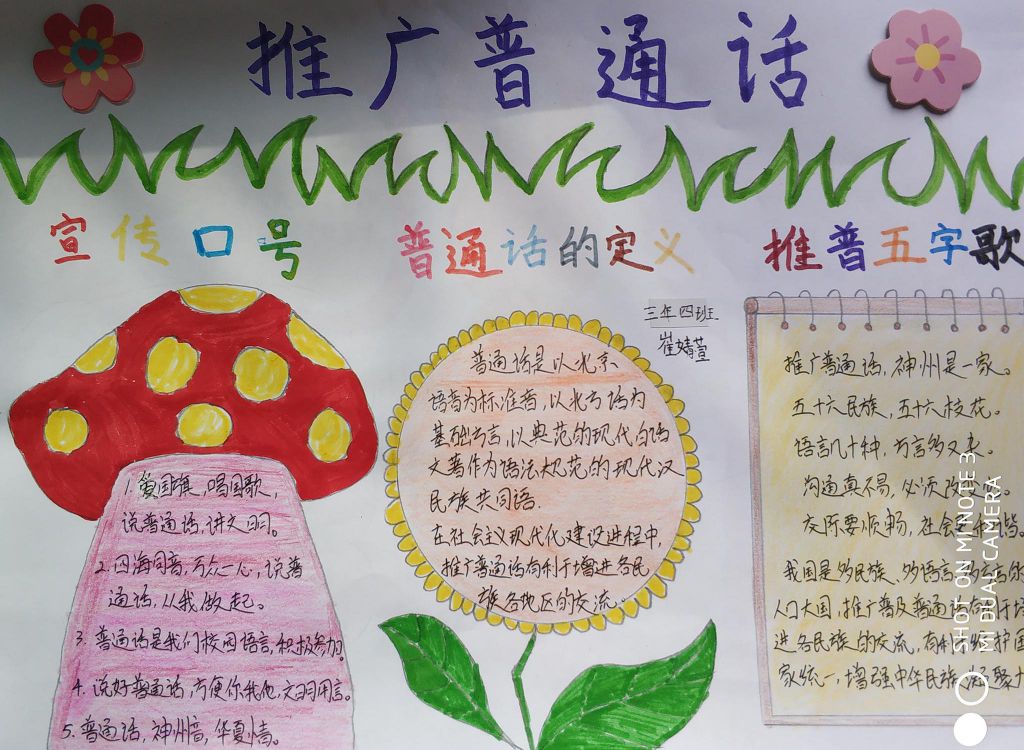 推广普通话
宣传口号
普通话的定义
推普五字歌
1.爱国旗,唱国歌,
说普通话,讲文明。
2.四海同音,万众一心,说普
通话,从我做起。
3.普通话是我们校园语言,积极参加。
4.说好普通话,方便你我他,文明用言。
5.普通话,神州音,华夏情。
三年四班
崔婧萱
普通话是以北京
语音为标准音,以北方话为
基础方言,以典范的现代白话
文著作为语法规范的现代汉
民族共同语.
在社会主义现代化建设进程中,
推广普通话有利于增进各民
族各地区的交流。
推广普通话,神州是一家。
五十六民族,五十六枝花。
语言几十种,方言多又杂。
沟通真不易,必须改
交际要顺畅,社会
我国是多民族、多语言、多方言的
人口大国,推广普及普通话有利于增
进各民族的交流,有利于维护国
家统一,增强中华民族凝聚力
SHOT ON MI NOTE 3
MI DUAL CAMERA